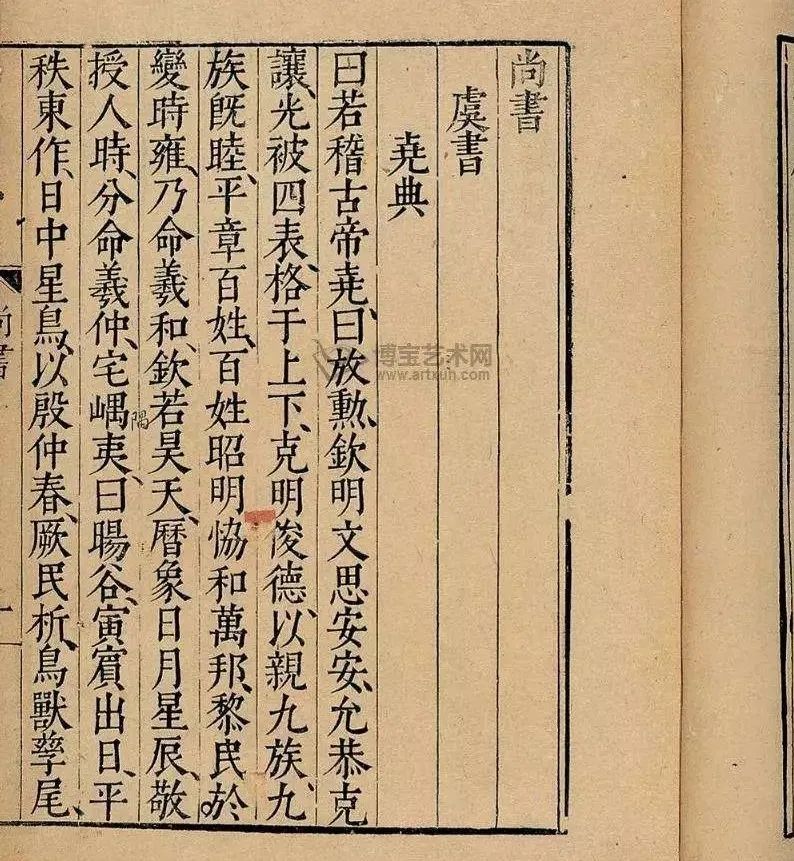 尚書
虞書
堯典
曰若稽古帝堯、曰放勲、欽明文思安安、允恭克
讓、光被四表、格于上下、克明俊德、以親九族、九
族旣睦、平章百姓、百姓昭明、恊和萬邦、黎民於
變時雍、乃命羲和、欽若昊天、曆象日月星辰、敬
授人時、分命羲仲、宅嵎夷、曰暘谷、寅賓出日、平
秩東作、日中星鳥、以殷仲春、厥民析、鳥獸孳尾、
隅
尚書
博宝艺术网
www.artxuh.com